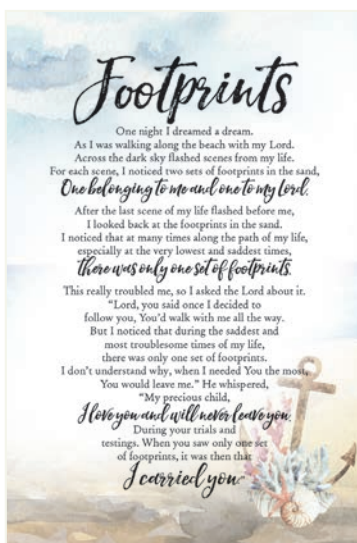 Footprints
One night I dreamed a dream.
As I was walking along the beach with my Lord.
Across the dark sky flashed scenes from my life.
For each scene, I noticed two sets of footprints in the sand,
One belonging to me and one to my Lord.
After the last scene of my life flashed before me,
I looked back at the footprints in the sand.
I noticed that at many times along the path of my life,
especially at the very lowest and saddest times,
there was only one set of footprints.
This really troubled me, so I asked the Lord about it.
“Lord, you said once I decided to
follow you, You’d walk with me all the way.
But I noticed that during the saddest and
most troublesome times of my life,
there was only one set of footprints.
I don’t understand why, when I needed You the most,
You would leave me.” He whispered,
“My precious child,
I love you and will never leave you.
During your trials and
testings. When you saw only one set
of footprints, it was then that
I carried you.”